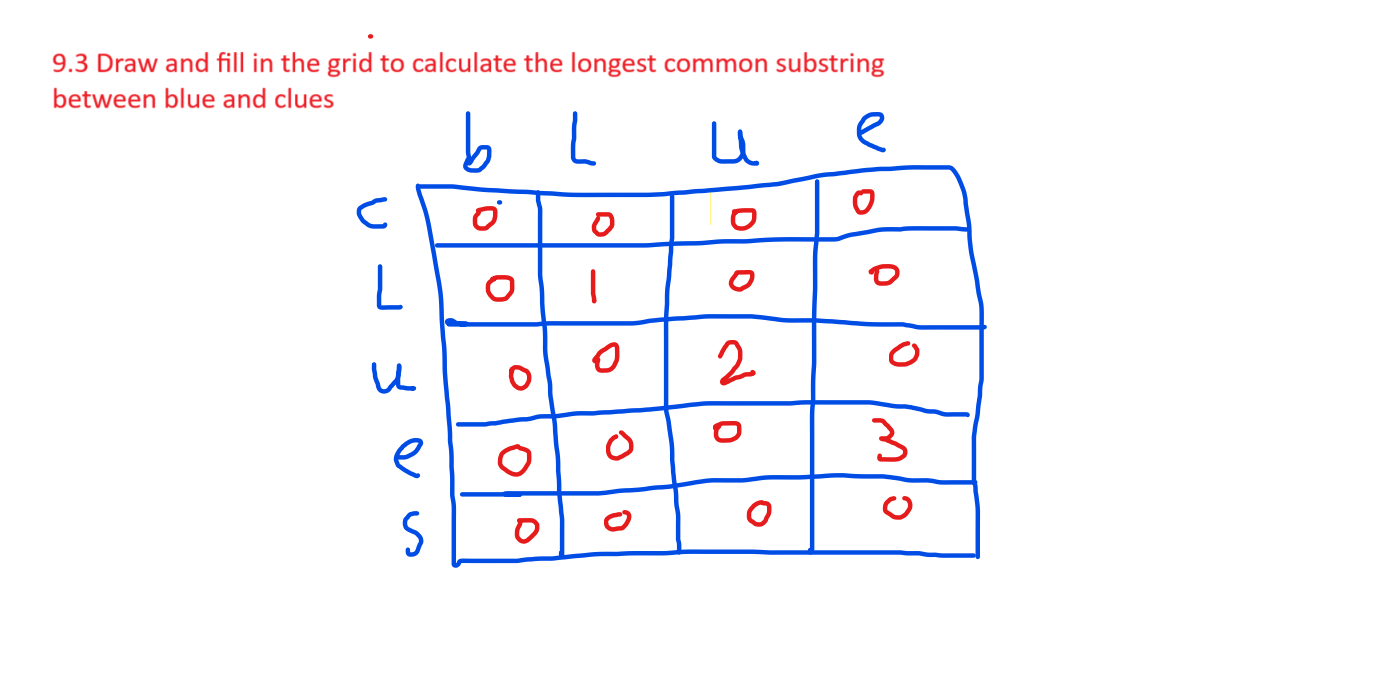 9.3 Draw and fill in the grid to calculate the longest common substring
between blue and clues
b L u e
c 0 0 0 0
L 0 1 0 0
u 0 0 2 0
e 0 0 0 3
s 0 0 0 0